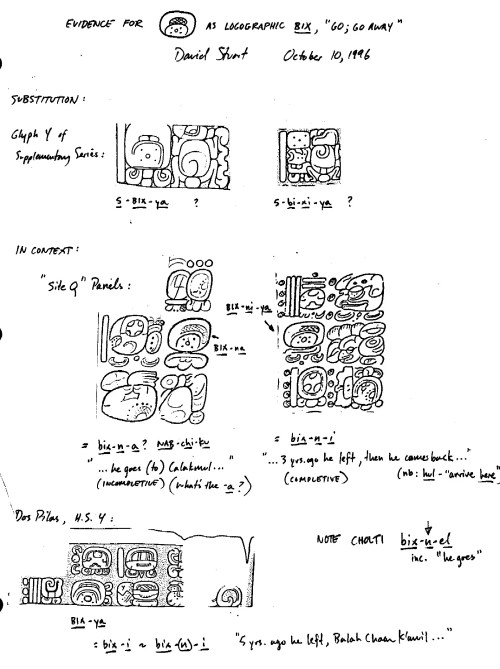 EVIDENCE FOR AS LOGOGRAPHIC BIX, "GO; GO AWAY"
David Stuart October 10, 1996
SUBSTITUTION:
Glyph Y of
Supplementary Series:
5-BIX-ya ?
5-bi-xi-ya ?
IN CONTEXT:
"Site Q" Panels:
BIX-ni-ya
BIX-na
= bix-n-a? NAB-chi-ku
"...he goes (to) Calakmul..."
(INCOMPLETIVE) (what's the -a?)
= bix-n-i
"...3 yrs. ago he left, then he comes back..."
(COMPLETIVE) (nb: hul - "arrive here")
Dos Pilas, H.S. 4:
NOTE CHOLTI bix-n-el
inc. "he goes"
BIX-ya
= bix-i ~ bix-(n)-i "5 yrs. ago he left, Balah Chaan K'awil..."